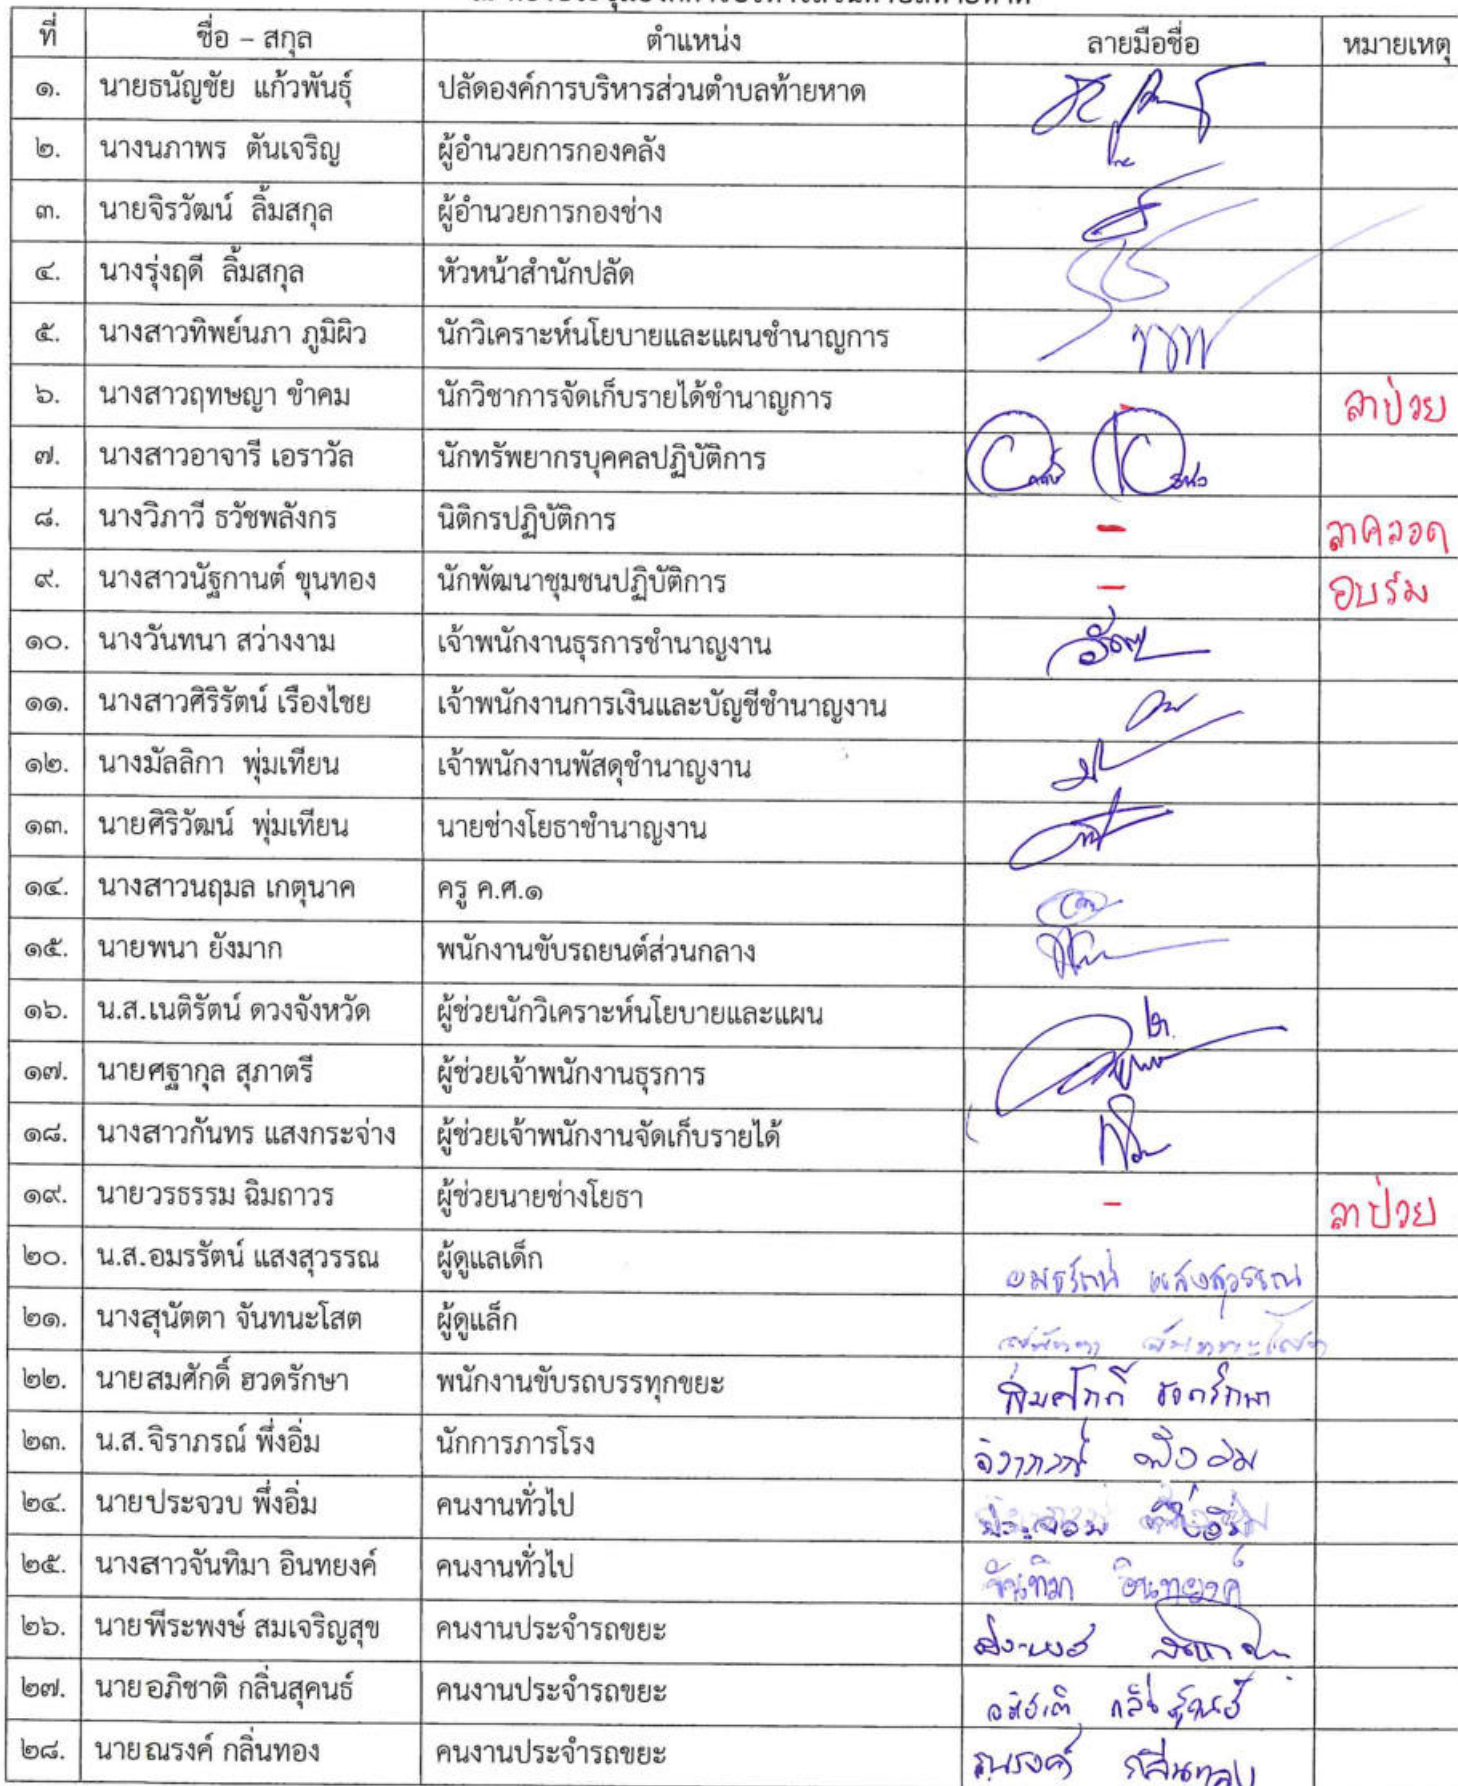 ที่ ชื่อ – สกุล ตำแหน่ง ลายมือชื่อ หมายเหตุ
๑. นายธนัญชัย แก้วพันธุ์ ปลัดองค์การบริหารส่วนตำบลท้ายหาด
๒. นางนภาพร ตันเจริญ ผู้อำนวยการกองคลัง
๓. นายจิรวัฒน์ ลิ้มสกุล ผู้อำนวยการกองช่าง
๔. นางรุ่งฤดี ลิ้มสกุล หัวหน้าสำนักปลัด
๕. นางสาวทิพย์นภา ภูมิผิว นักวิเคราะห์นโยบายและแผนชำนาญการ
๖. นางสาวฤทษญา ขำคม นักวิชาการจัดเก็บรายได้ชำนาญการ - ลาป่วย
๗. นางสาวอาจารี เอราวัล นักทรัพยากรบุคคลปฏิบัติการ
๘. นางวิภาวี ธวัชพลังกร นิติกรปฏิบัติการ - ลาคลอด
๙. นางสาวนัฐกานต์ ขุนทอง นักพัฒนาชุมชนปฏิบัติการ - อบรม
๑๐. นางวันทนา สว่างงาม เจ้าพนักงานธุรการชำนาญงาน
๑๑. นางสาวศิริรัตน์ เรืองไชย เจ้าพนักงานการเงินและบัญชีชำนาญงาน
๑๒. นางมัลลิกา พุ่มเทียน เจ้าพนักงานพัสดุชำนาญงาน
๑๓. นายศิริวัฒน์ พุ่มเทียน นายช่างโยธาชำนาญงาน
๑๔. นางสาวนฤมล เกตุนาค ครู ค.ศ.๑
๑๕. นายพนา ยังมาก พนักงานขับรถยนต์ส่วนกลาง
๑๖. น.ส.เนติรัตน์ ดวงจังหวัด ผู้ช่วยนักวิเคราะห์นโยบายและแผน
๑๗. นายศฐากุล สุภาตรี ผู้ช่วยเจ้าพนักงานธุรการ
๑๘. นางสาวกันทร แสงกระจ่าง ผู้ช่วยเจ้าพนักงานจัดเก็บรายได้
๑๙. นายวรธรรม ฉิมถาวร ผู้ช่วยนายช่างโยธา - ลาป่วย
๒๐. น.ส.อมรรัตน์ แสงสุวรรณ ผู้ดูแลเด็ก อมรรัตน์ แสงสุวรรณ
๒๑. นางสุนัตตา จันทนะโสต ผู้ดูแล็ก สุนัตตา จันทนะโสต
๒๒. นายสมศักดิ์ ฮวดรักษา พนักงานขับรถบรรทุกขยะ สมศักดิ์ ฮวดรักษา
๒๓. น.ส.จิราภรณ์ พึ่งอิ่ม นักการภารโรง จิราภรณ์ พึ่งอิ่ม
๒๔. นายประจวบ พึ่งอิ่ม คนงานทั่วไป ประจวบ พึ่งอิ่ม
๒๕. นางสาวจันทิมา อินทยงค์ คนงานทั่วไป จันทิมา อินทยงค์
๒๖. นายพีระพงษ์ สมเจริญสุข คนงานประจำรถขยะ
๒๗. นายอภิชาติ กลิ่นสุคนธ์ คนงานประจำรถขยะ อภิชาติ กลิ่นสุคนธ์
๒๘. นายณรงค์ กลิ่นทอง คนงานประจำรถขยะ ณรงค์ กลิ่นทอง